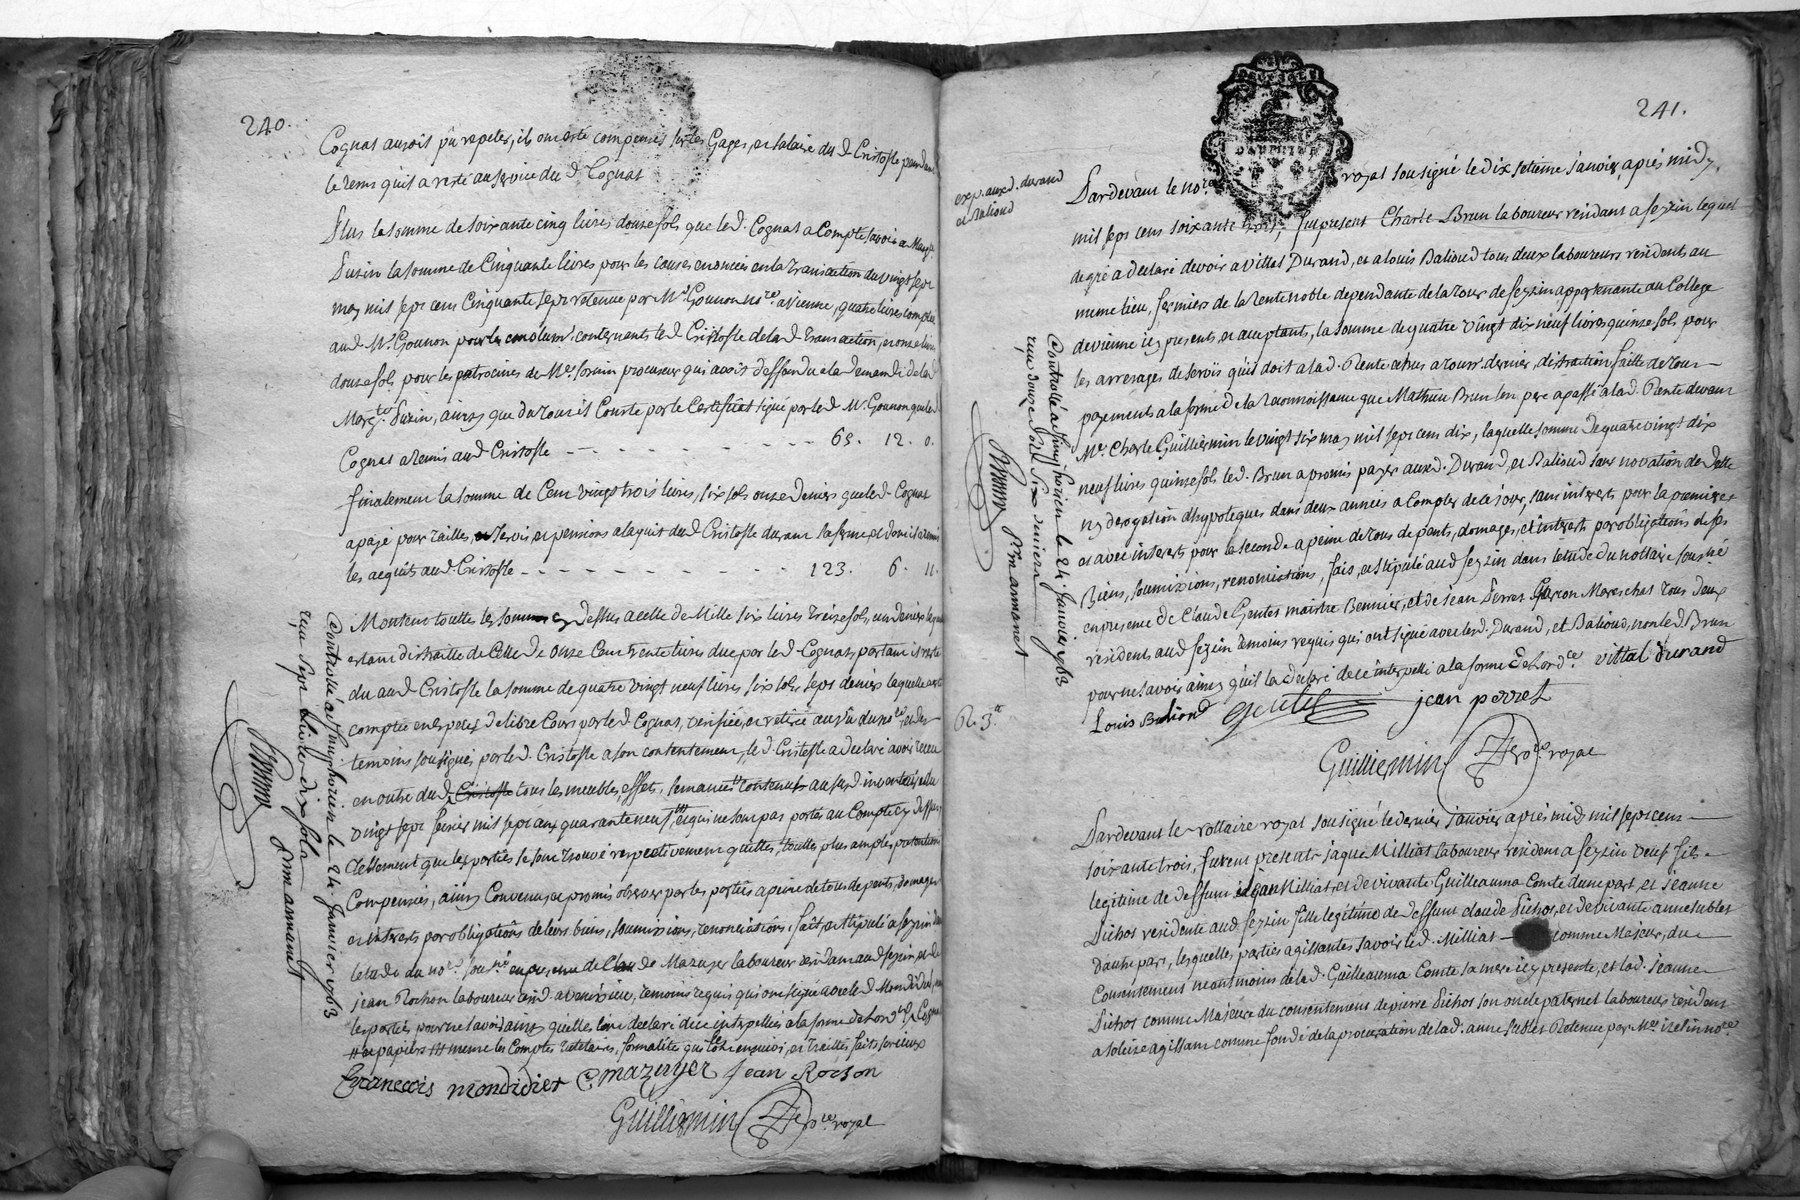 240.
Cognat auroit pu repeter, ils ont esté compensés sur les Gages, et salaire du d. Cristofle pendant
le tems qu'il a resté au service du d. Cognat
Plus la somme de soixante cinq livres douze sols que led. Cognat a compté savoir a Marg.te
Suzin la somme de Cinquante livres pour les causes enoncées en la transaction du vingt sept
may mil sept cens Cinquante sept retenue par Me. Gounon no.re a vienne, quatre livres comptées
aud. Me. Gounon pour les emolum.ts contenants led. Cristofle de lad. transaction, et onze livres
douze sols pour les patrocines de Me. procureur qui avoit deffendu a la demande de lad.
Marg.te Suzin, ainsy que du tout il Conste par le Certifficat signé par led. Me. Gounon que led.
Cognat a remis aud. Cristofle - - - - - - - - - 65. 12. 0.
finalement la somme de Cent vingt trois livres, six sols onze deniers que led. Cognat
a payé pour tailles, servis et pensions a l'aquit dud. Cristofle durant sa ferme et dont il a remis
les acquits aud. Cristofle - - - - - - - - - - - 123. 6. 11.
Montent touttes les sommes cy dessus a celle de Mille six livres treize sols, un denier laquelle
estant distraitte de Celle de onze Cent trente livres due par led. Cognat, partant il reste
du aud. Cristofle la somme de quatre vingt neuf livres six sols sept deniers laquelle a esté
comptée en especes de libre Cours par led. Cognat, verifiée, et retirée au vû du no.re et des
temoins sousignés par led. Cristofle a son contentement, led. Cristofle a declaré avoir receu
en outre dud. Cristofle tous les meubles, effets, semances contenus au susd. inventaire du
vingt sept fevrier mil sept cens quarante neuf, et qui ne sont pas portés au Compte cy dessus
tellement que les parties se sont trouvé respectivement quittes, touttes plus amples pretentions
Compensées, ainsy Convenu, et promis observer par les parties a peine de tous depents, domages
et interets par obligations de leurs biens, soumissions, renonciations, fait, et stipulé a seyzin dans
letude du no.re sous.né en presence de Claude Mazuyer laboureur residant aud. seyzin, et de
jean Rochon laboureur resid. a venissieu, temoins requis qui ont signé avec led. Mondidier, non
les parties pour ne savoir ainsy qu'elles l'ont declaré de ce interpellées a la forme de l'ord.ce Cognat
et papiers meme les Comptes
francois mondidier C. mazuyer Jean Rochon
Guilliermin no.re royal
Controllé a St. simphorien le 24. Janvier 1763
reçu sept livres dix sols
Armanet
241.
DAUPHINE
exp. aux d. durand
et Balioud
Pardevant le no.re royal sousigné le dix septieme janvier, aprés midy
mil sept cens soixante trois, fut present Charle Brun laboureur residant a seyzin lequel
de gré a declaré devoir a Vittal Durand, et a louis Balioud tous deux laboureurs residents au
meme lieu, fermiers de la rente noble dependante de la tour de seyzin appartenante au College
de vienne icy presents, et acceptants, la somme de quatre vingt dix neuf livres quinze sols pour
les arrerages de servis qu'il doit a lad. Rente echus a tour dernier, distraction faitte de tous
payements a la forme de la reconnoissance que Mathieu Brun son pere a passé a lad. Rente devant
Me. Charle Guilliermin le vingt six may mil sept cens dix, laquelle somme de quatre vingt dix
neuf livres quinze sols led. Brun a promis payer auxd. Durand, et Balioud sans novation de dette
ny derogation d'hypoteques dans deux années a compter de ce jour, sans interets pour la premiere
et avec interets pour la seconde a peine de tous depents, domages, et interets par obligations de ses
Biens, soumissions, renonciations, fait, et stipulé aud. seyzin dans letude du nottaire sous.né
en presence de Claude Gentet maitre Bennier, et de jean Perret Garçon Marechal tous deux
residents aud. seyzin temoins requis qui ont signé avec lesd. Durand, et Balioud, non led. Brun
pour ne savoir ainsy qu'il l'a declaré de ce interpellé a la forme de l'ord.ce vittal durand
Louis Baliond Gentet jean perret
Guilliermin no.re royal
Controllé a St. simphorien le 24. Janvier 1763
reçu douze sols six deniers
Armanet
Pardevant le nottaire royal sousigné le dernier janvier aprés midy mil sept cens
soixante trois, furent presents jaque Milliat laboureur resident a seyzin veuf fils
legitime de deffunt jean Milliat, et de vivante Guilleauma Comte d'une part, et jeanne
Pichot residente aud. seyzin fille legitime de deffunt claude Pichot, et de vivante anne sublet
d'autre part, lesquelles parties agissantes savoir led. Milliat comme Majeur, du
Consentement neantmoins de lad. Guilleauma Comte sa mere icy presente, et lad. jeanne
Pichot comme Majeure du consentement de pierre Pichot son oncle paternel laboureur resident
a solaize agissant comme fondé de la procuration de lad. anne sublet Retenue par Me.